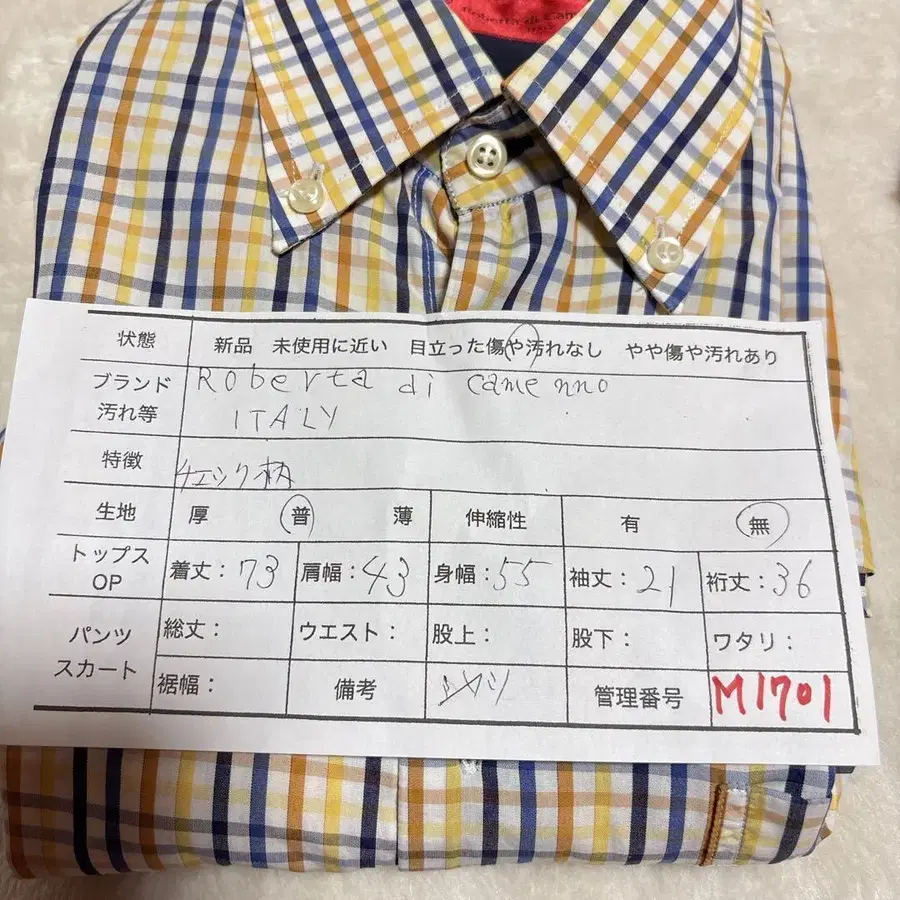 Roberta di Cam
状態 新品 未使用に近い 目立った傷や汚れなし やや傷や汚れあり
ブランド Roberta di came nno
汚れ等 ITALY
特徴 チェック柄
生地 厚 普 薄 伸縮性 有 無
トップス OP 着丈：73 肩幅：43 身幅：55 袖丈：21 裄丈：36
パンツ スカート 総丈： ウエスト： 股上： 股下： ワタリ：
裾幅： 備考 シャツ 管理番号 M1701